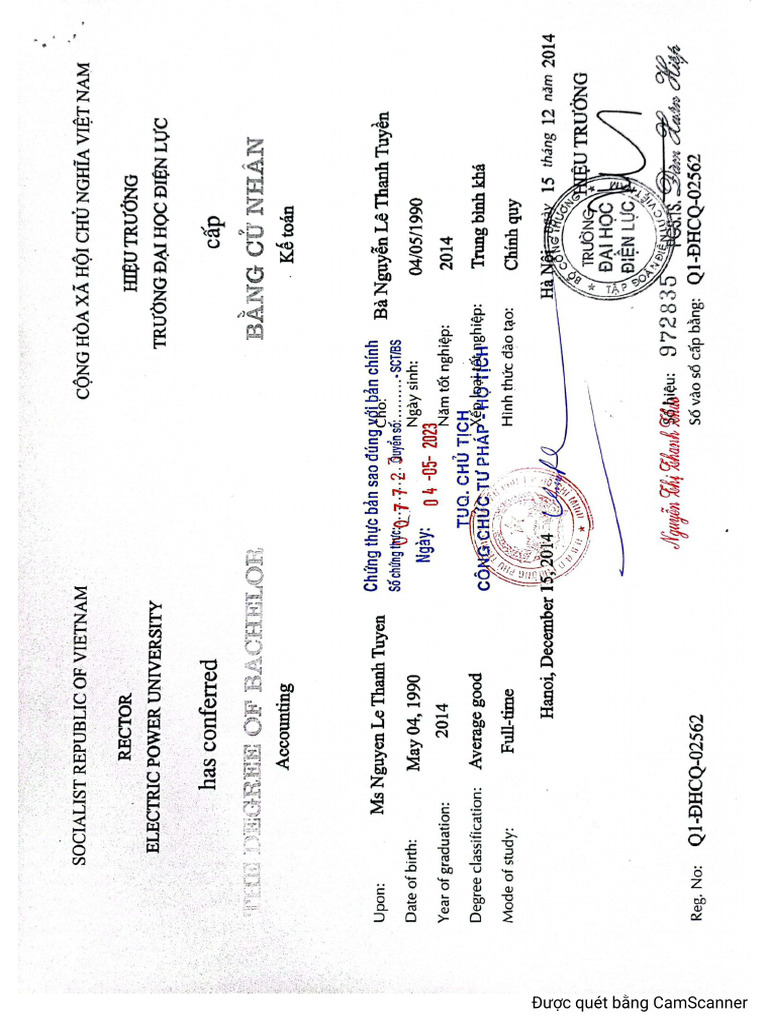 SOCIALIST REPUBLIC OF VIETNAM
RECTOR
ELECTRIC POWER UNIVERSITY
has conferred
THE DEGREE OF BACHELOR
Accounting
Upon: Ms Nguyen Le Thanh Tuyen
Date of birth: May 04, 1990
Year of graduation: 2014
Degree classification: Average good
Mode of study: Full-time
Hanoi, December 15, 2014
Reg. No: Q1-ĐHCQ-02562
CỘNG HÒA XÃ HỘI CHỦ NGHĨA VIỆT NAM
HIỆU TRƯỞNG
TRƯỜNG ĐẠI HỌC ĐIỆN LỰC
cấp
BẰNG CỬ NHÂN
Kế toán
Cho: Bà Nguyễn Lê Thanh Tuyền
Ngày sinh: 04/05/1990
Năm tốt nghiệp: 2014
Xếp loại tốt nghiệp: Trung bình khá
Hình thức đào tạo: Chính quy
Hà Nội, ngày 15 tháng 12 năm 2014
HIỆU TRƯỞNG
TRƯỜNG
ĐẠI HỌC
ĐIỆN LỰC
BỘ CÔNG THƯƠNG
TẬP ĐOÀN ĐIỆN LỰC VIỆT NAM
PGS.TS. Đàm Xuân Hiệp
Số hiệu: 972835
Số vào sổ cấp bằng: Q1-ĐHCQ-02562
Chứng thực bản sao đúng với bản chính
Số chứng thực: 00772 Quyển số:..........-SCT/BS
Ngày: 04-05-2023
TUQ. CHỦ TỊCH
CÔNG CHỨC TƯ PHÁP - HỘ TỊCH
Nguyễn Thị Thanh Thảo
Được quét bằng CamScanner